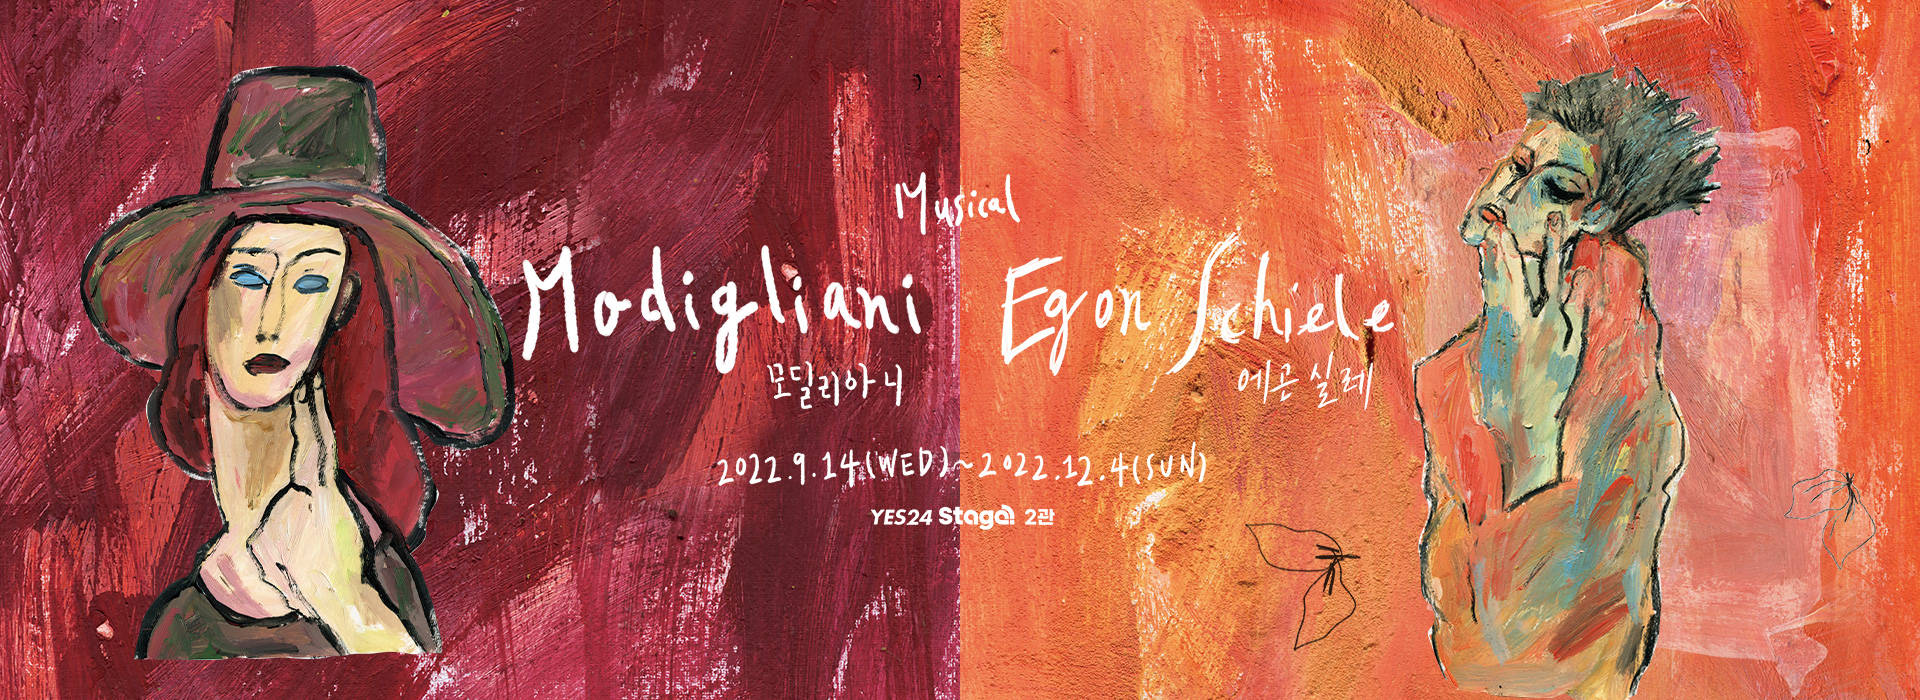 Musical
Modigliani Egon Schiele
모딜리아니 에곤 실레
2022.9.14(WED)~2022.12.4(SUN)
YES24 Stage 2관